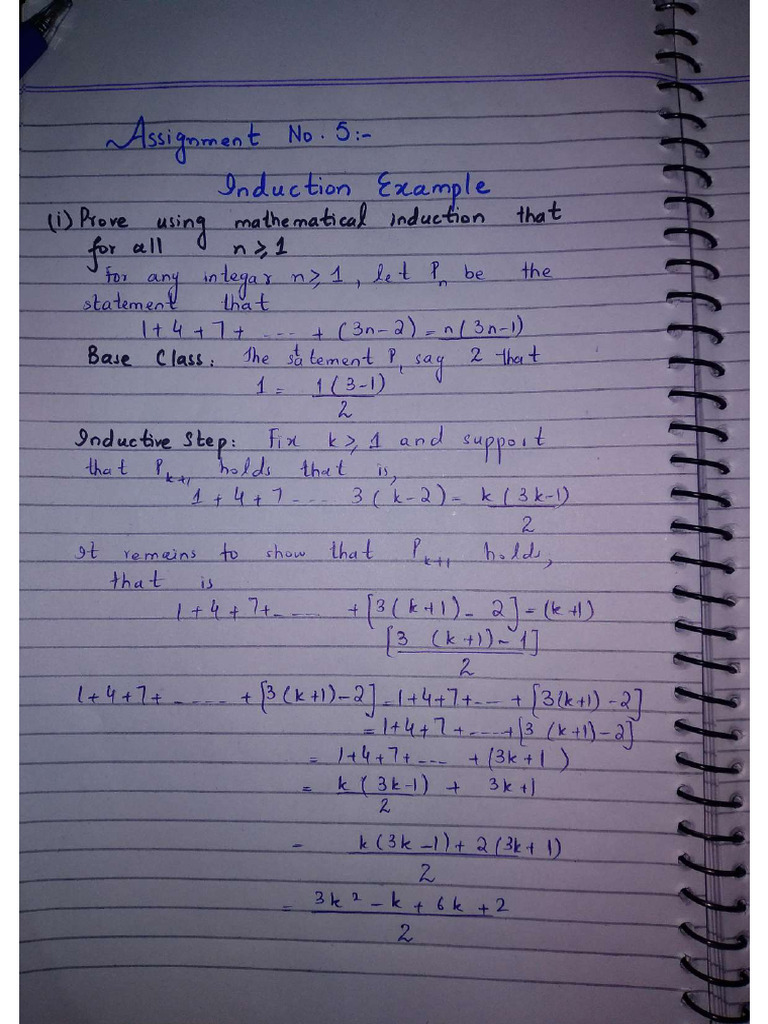 Assignment No. 5:-
Induction Example
(i) Prove using mathematical induction that
for all n ≥ 1
for any integar n ≥ 1, let Pn be the
statement that
1 + 4 + 7 + ..... + (3n-2) = n(3n-1)
Base Class: The statement P, say 2 that
1 = 1(3-1)
2
Inductive Step: Fix k ≥ 1 and support
that Pk+1 holds that is,
1 + 4 + 7 .... 3(k-2) = k(3k-1)
2
It remains to show that Pk+1 holds,
that is
1 + 4 + 7 + ..... + [3(k+1) - 2] = (k+1)
[3 (k+1) - 1]
2
1 + 4 + 7 + ..... + [3(k+1) - 2] = 1 + 4 + 7 + ... + [3(k+1) - 2]
= 1 + 4 + 7 + ..... + [3 (k+1) - 2]
= 1 + 4 + 7 + .... + (3k + 1)
= k(3k-1) + 3k + 1
2
= k(3k-1) + 2(3k+1)
2
= 3k² - k + 6k + 2
2